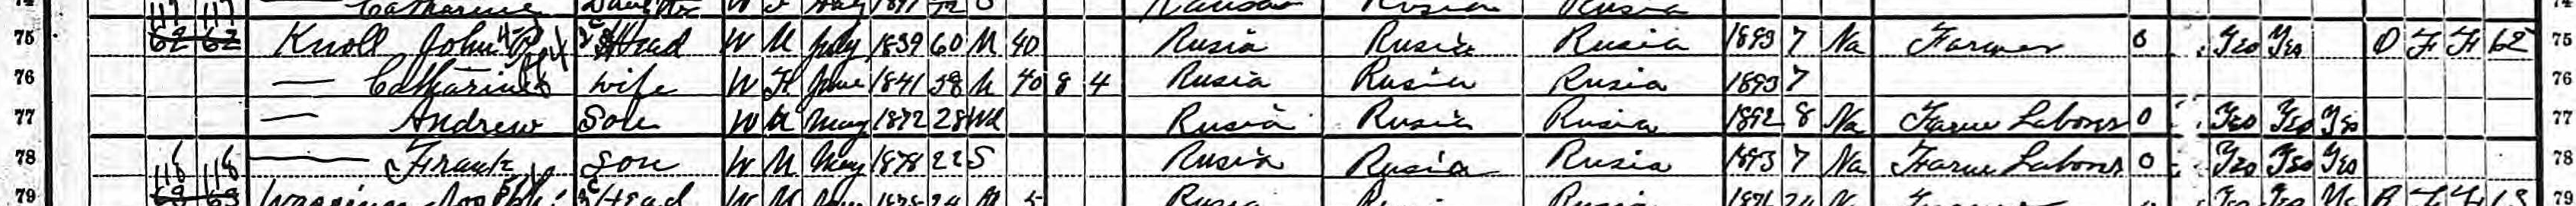 Catharine Daughter W F Kansas Rusia Rusia
75 117 117 62 62 Knoll John Head W M July 1839 60 M 40 Rusia Rusia Rusia 1893 7 Na Farmer 0 Yes Yes O F F 62 75
76 — Catharine wife W F June 1841 58 M 40 8 4 Rusia Rusia Rusia 1893 7 76
77 — Andrew Son W M May 1872 28 Wd Rusia Rusia Rusia 1892 8 Na Farm Laborer 0 Yes Yes Yes 77
78 — Frank Son W M May 1878 22 S Rusia Rusia Rusia 1893 7 Na Farm Laborer 0 Yes Yes Yes 78
79 118 118 63 63 Head W M M 5 Rusia Rusia Rusia Na F 63 79